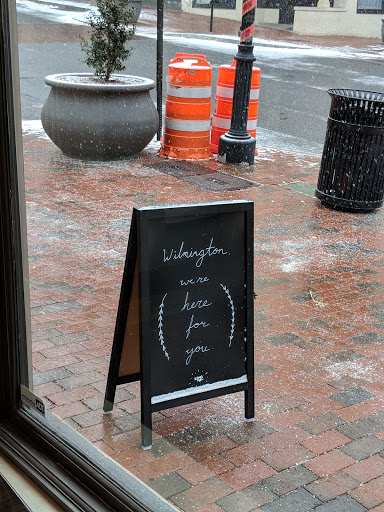 Wilmington,
we're
here
for
you.